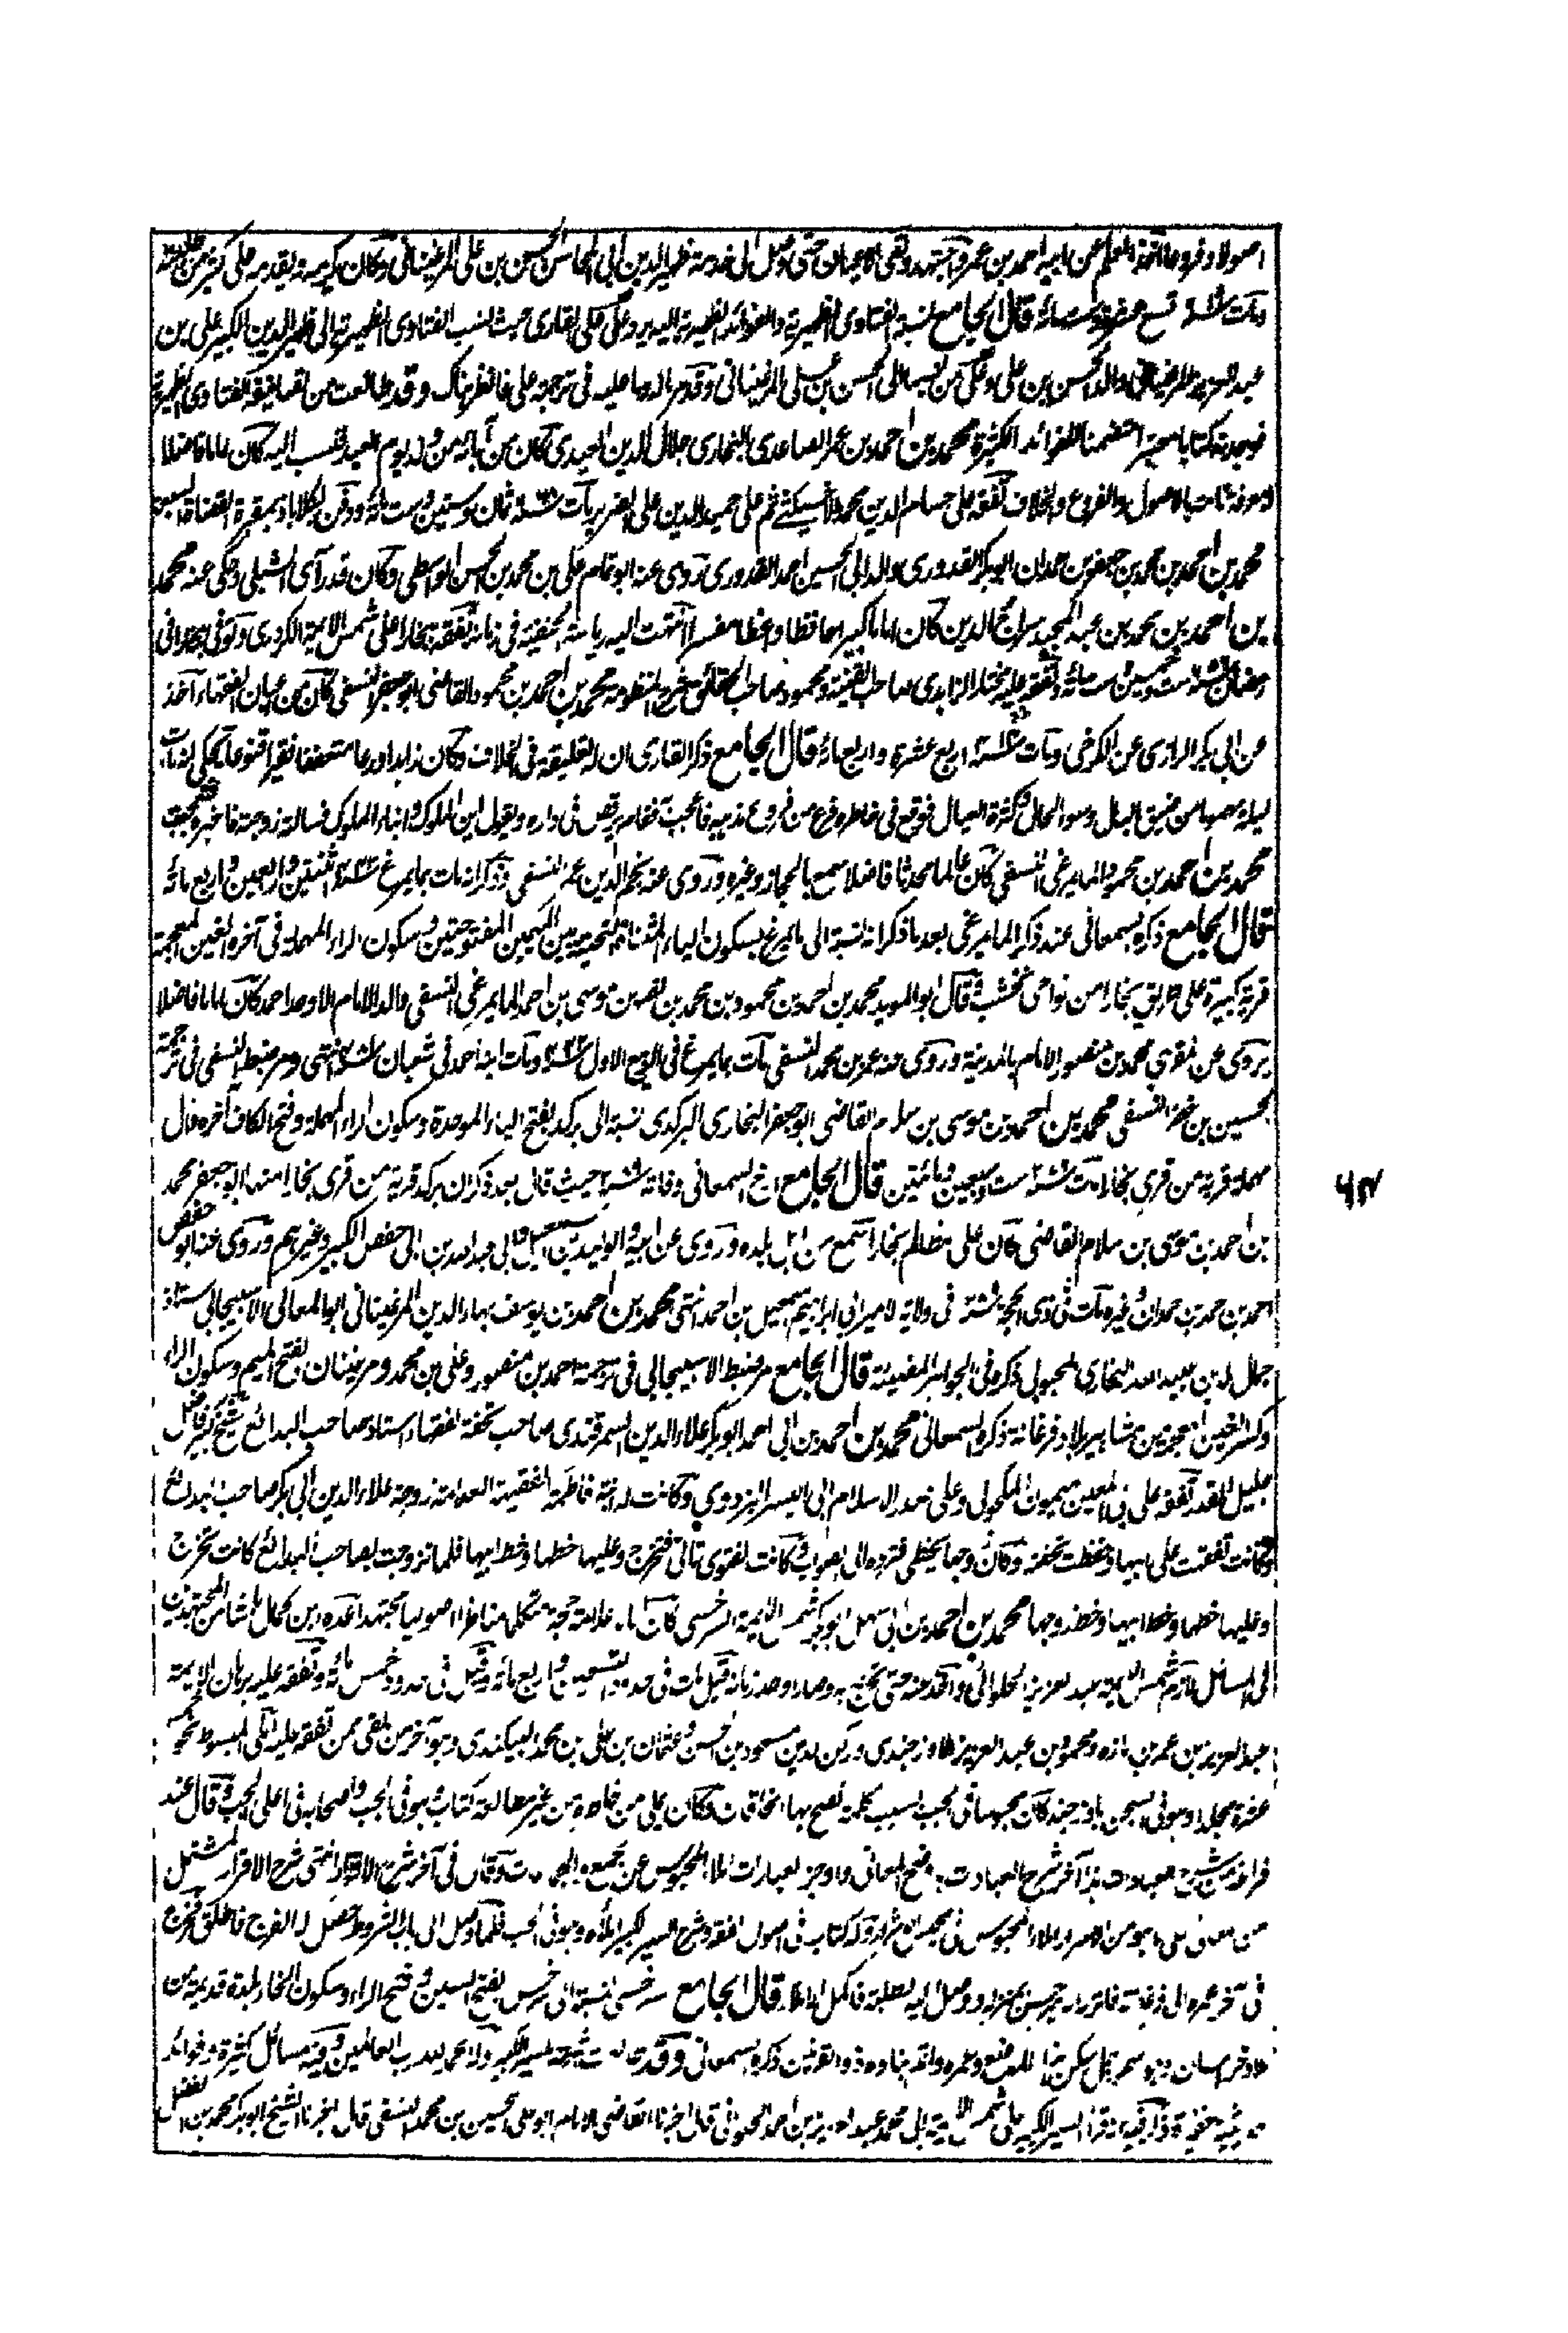 اصولا وفروعا اخذ العلم عن ابيه احمد بن عمر واجتهد ولقى الاعيان حتى وصل الى خدمة ظهير الدين ابى المحاسن الحسن بن على المرغينانى وكان يكرمه ويقدمه على كثير من طلبته
ومات سنة تسع عشرة وست مائة قال الجامع نسبة الفتاوى الظهيرية والفوائد الظهيرية اليه يرد على على القارى حيث نسب الفتاوى الظهيرية الى ظهير الدين الكبير على بن
عبد العزيز المرغينانى والد الحسن بن على وعلى من نسبها الى الحسن بن على المرغينانى وقد مر الرد عليه فى ترجمة على فانظر هناك وقد طالعت من تصانيفه الفتاوى الظهيرية
فوجدته كتابا معتبرا متضمنا للفوائد الكثيرة محمد بن احمد بن عمر الصاعدى البخارى جلال الدين العيدى كان من آبائه من ولد يوم العيد فنسب اليه كان اماما فاضلا
له معرفة تامة بالاصول والفروع والخلاف تفقه على حسام الدين محمد الاخسيكثى ثم على حميد الدين على الضرير مات سنة ٦٦٨ ثمان وستين وست مائة ودفن بكلاباد بمقبرة القضاة السبعة
محمد بن احمد بن محمد بن جعفر بن حمدان ابو بكر القدورى والد ابى الحسين احمد القدورى روى عنه ابو تمام على بن محمد بن الحسن الواسطى وكان قد رآى الشبلى وحكى عنه محمد
بن احمد بن محمد بن عبد المجيد سراج الدين كان اماما كبيرا حافظا واعظا مفسرا انتهت اليه رياسة الحنفية فى زمانه تفقه ببخارا على شمس الايمة الكردرى وتوفى بها فى
رمضان سنة ست وخمسين ست مائة وتفقه عليه مختار الزاهدى صاحب القنية ومحمود صاحب الحقائق شرح المنظومة محمد بن احمد بن محمود القاضى ابو جعفر النسفى كان من اعيان الفقهاء آخذ
عن ابى بكر الرازى عن الكرخى ومات سنة اربع عشرة واربع مائة قال الجامع ذكر القارى ان له تعليقة فى الخلاف وكان زاهدا ورعا متعففا فقيرا قنوعا يحكى انه بات
ليلة مهموما من ضيق البال وسوء الحال وكثرة العيال فوقع فى خاطره فرع من فروع مذهبه فاعجب فقام يرقص فى داره ويقول اين الملوك وابناء الملوك فسالته زوجته فاخبرها فتعجبت
محمد بن احمد بن محمود المايمرغى النسفى كان عالما محدثا فاضلا سمع بالحجاز وغيره وروى عنه نجم الدين عمر النسفى وذكر انه مات بمايمرغ سنة ٤٤٢ اثنتين واربعين واربع مائة
قال الجامع ذكره السمعانى عند ذكر المايمرغى بعد ما ذكر انه نسبة الى مايمرغ بسكون الياء المثناة التحتية بين الميمين المفتوحتين وسكون الراء المهملة فى آخره الغين المعجمة
قرية كبيرة على طريق بخارا من نواحى نخشب قال ابو المويد محمد بن احمد بن محمود بن محمد بن نصر بن موسى بن احمد المايمرغى النسفى والد الامام الاوحد احمد كان اماما فاضلا
يروى عن المقرى محمد بن منصور الامام بالمدينة وروى عنه عمر بن محمد النسفى مات بمايمرغ فى الربيع الاول سنة ٤٤٢ ومات ابنه احمد فى شعبان سنة انتهى ومر ضبط النسفى فى ترجمة
الحسين بن خضر النسفى محمد بن احمد بن موسى بن سلام القاضى ابو جعفر البخارى البركدى نسبة الى بركد بفتح الباء الموحدة وسكون الراء المهملة وفتح الكاف آخره دال
مهملة قرية من قرى بخارا مات سنة ست وسبعين ومائتين قال الجامع ارخ السمعانى وفاته سنة حيث قال بعد ذكر ان بركد قرية من قرى بخارا منها ابو جعفر محمد
بن احمد بن موسى بن سلام القاضى كان على مظالم بخارا سمع من اهل بلده وروى عن ابيه وابى الوليد بن اسمعيل وابى عبد الله بن ابى حفص الكبير وغيرهم وروى عنه ابو حفص
احمد بن حمد بن حمدان وغيره مات فى ذى الحجة سنة فى ولاية الامير ابى ابراهيم اسمعيل بن احمد انتهى محمد بن احمد بن يوسف بهاء الدين المرغينانى ابو المعالى الاسبيجابى استاذ
جمال الدين عبيد الله البخارى المحبوبى ذكره فى الجواهر المضيئة قال الجامع مر ضبط الاسبيجابى فى ترجمة احمد بن منصور وعلى بن محمد ومرغينان بفتح الميم وسكون الراء
وكسر الغين المعجمة من مشاهير بلاد فرغانة ذكره السمعانى محمد بن احمد بن ابى احمد ابو بكر علاء الدين السمرقندى صاحب تحفة الفقهاء استاذ صاحب البدائع شيخ كبير فاضل
جليل القدر تفقه على ابى المعين ميمون المكحولى وعلى صدر الاسلام ابى اليسر البزدوى وكانت له ابنة فاطمة الفقيهة العلامة زوجة علاء الدين ابى بكر صاحب البدائع
وكانت تفقهت على ابيها وحفظت تحفته وكان زوجها يخطى فترده الى الصواب وكانت الفتوى تاتى فتخرج وعليها خطها وخط ابيها فلما تزوجت بصاحب البدائع كانت تخرج
وعليها خطها وخط ابيها وخط زوجها محمد بن احمد بن ابى سهل ابو بكر شمس الايمة السرخسى كان اماما علامة حجة متكلما مناظرا اصوليا مجتهدا عده ابن كمال باشا من المجتهدين
فى المسائل لازم شمس الايمة عبد العزيز الحلوانى واخذ عنه حتى تخرج به وصار اوحد زمانه قيل مات فى حدود التسعين واربع مائة وقيل فى حدود خمس مائة وتفقه عليه برهان الايمة
عبد العزيز بن عمر بن مازه ومحمود بن عبد العزيز الاوزجندى وركن الدين مسعود بن الحسن وعثمان بن على بن محمد البيكندى وهو آخر من بقى ممن تفقه عليه املى المبسوط نحو خمسة
عشرة مجلدا وهو فى السجن باوزجند كان محبوسا فى الجب بسبب كلمة نصح بها الخاقان وكان يملى من خاطره من غير مطالعة كتاب وهو فى الجب واصحابه فى اعلى الجب وقال عند
فراغه من شرح العبادات هذا آخر شرح العبادات باوضح المعانى واوجز العبارات املاء المحبوس عن الجمع والجماعات وقال فى آخر شرح الاقرار انتهى شرح الاقرار المشتمل
من المعانى على ما هو من الاسرار املاء المحبوس فى محبس الاشرار وله كتاب فى اصول الفقه وشرح السير الكبير املاه وهو فى الجب فلما وصل الى باب الشروط حصل له الفرج فاطلق فخرج
فى آخر عمره الى فرغانة فانزله الامير حسن بمنزله ووصل اليه الطلبة فاكمل الاملاء قال الجامع سرخسى نسبة الى سرخس بفتح السين وفتح الراء وسكون الخاء بلدة قديمة من
بلاد خراسان وهو اسم رجل سكن هذا الموضع وعمره واتم بناءه ذو القرنين ذكره السمعانى وقد طالعت شرحه للسير الكبير ولله الحمد رب العالمين وفيه مسائل كثيرة وفوائد
ذكر فيه انه قرأ السير الكبير على شمس الايمة ابى محمد عبد العزيز بن احمد الحلوانى قال اخبرنا القاضى الامام ابو على الحسين بن محمد النسفى قال اخبرنا الشيخ ابو بكر محمد بن الفضل